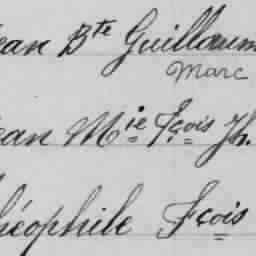 ean Bte Guillaum
Marc
ean Mie Fçois Jh.
héophile Fçois